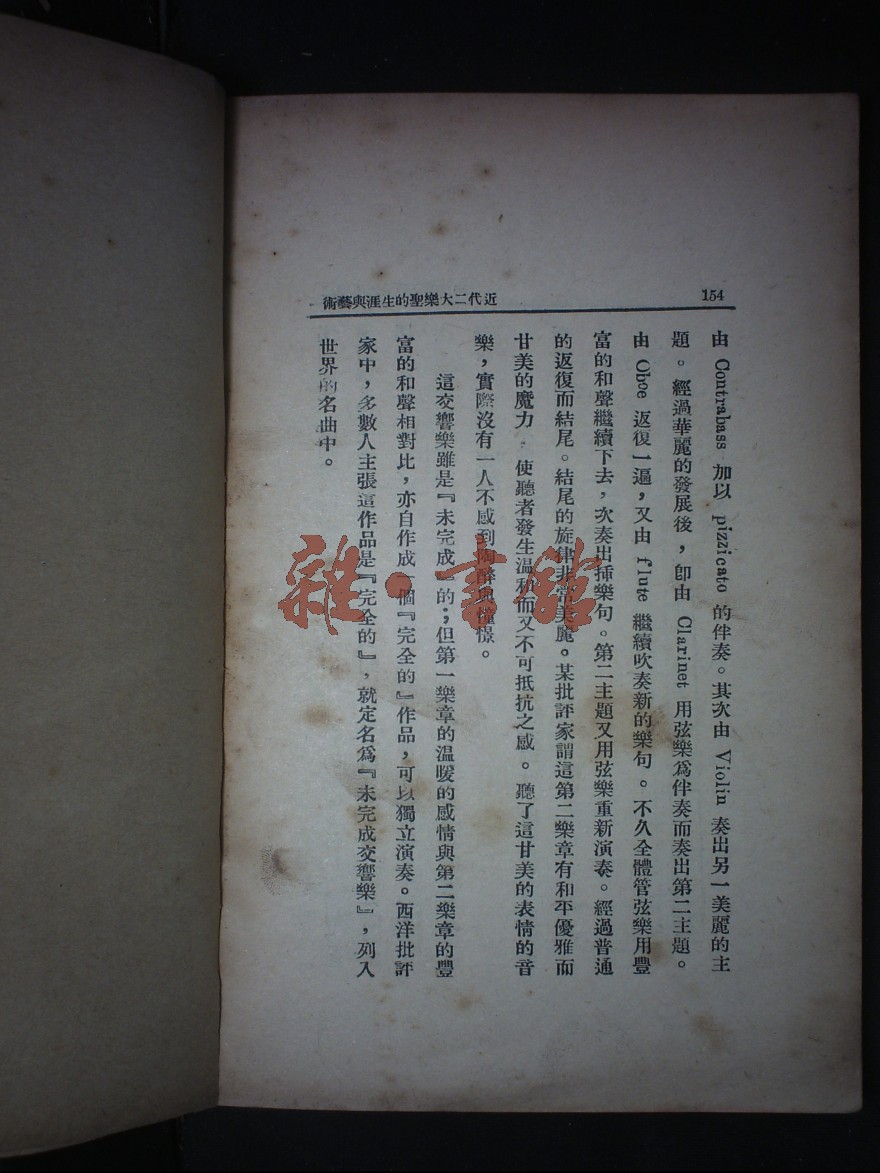 154
近代二大樂聖的生涯與藝術
由 Contrabass 加以 pizzicato 的伴奏。其次由 Violin 奏出另一美麗的主
題。經過華麗的發展後,卽由 Clarinet 用弦樂爲伴奏而奏出第二主題。
由 Oboe 返復一遍,又由 flute 繼續吹奏新的樂句。不久全體管弦樂用豐
富的和聲繼續下去,次奏出揷樂句。第二主題又用弦樂重新演奏。經過普通
的返復而結尾。結尾的旋律非常美麗。某批評家謂這第二樂章有和平優雅而
甘美的魔力,使聽者發生温和而又不可抵抗之感。聽了這甘美的表情的音
樂,實際沒有一人不感到陶醉與憧憬。
這交響樂雖是『未完成』的;但第一樂章的温暖的感情與第二樂章的豐
富的和聲相對比,亦自作成一個『完全的』作品,可以獨立演奏。西洋批評
家中,多數人主張這作品是『完全的』,就定名爲『未完成交響樂』,列入
世界的名曲中。
雜·書館